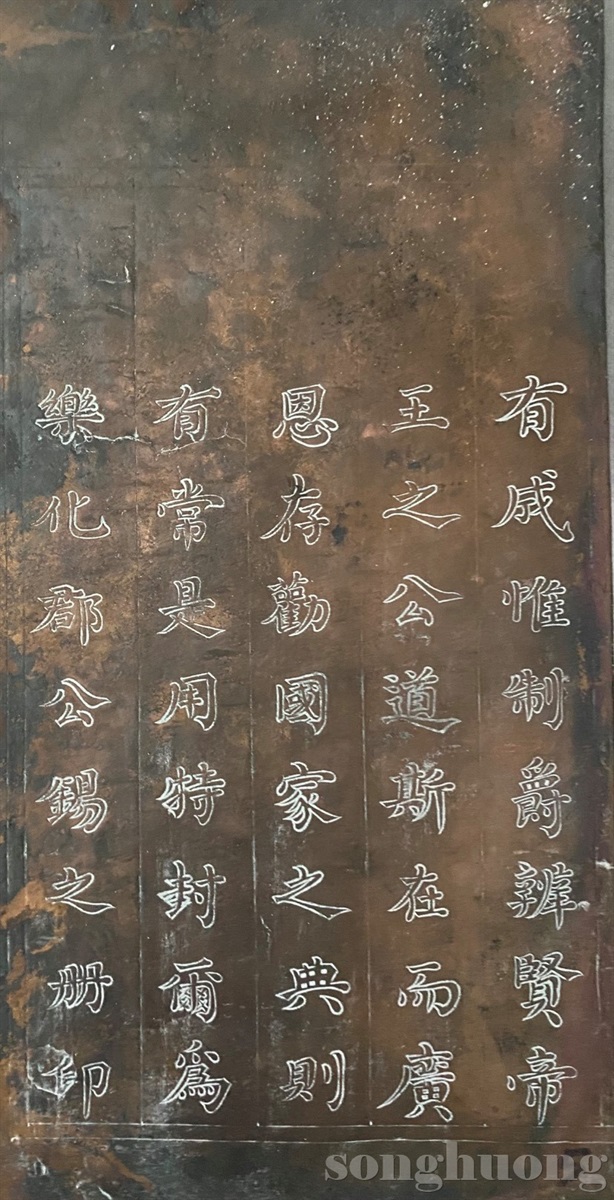 有成惟制爵辨賢帝
王之公道斯在而廣
恩存勸國家之典則
有常是用特封爾為
樂化郡公錫之册印
songhuong